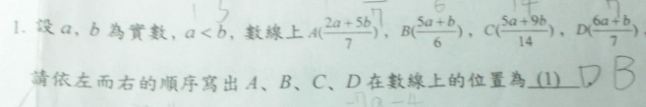 1. 設 a、b 為實數，a<b，數線上 A(\frac{2a+5b}{7})，B(\frac{5a+b}{6})，C(\frac{5a+9b}{14})，D(\frac{6a+b}{7})，
請依左而右的順序寫出 A、B、C、D 在數線上的位置為 (1) D B